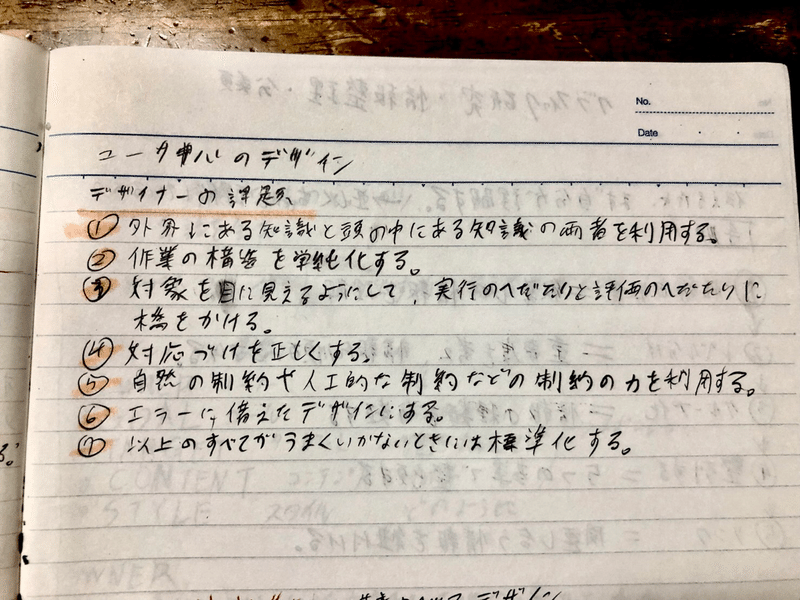 No.
Date
ユーザ中心のデザイン
デザイナーの課題
① 外界にある知識と頭の中にある知識の両者を利用する。
② 作業の構造を単純化する。
③ 対象を目に見えるようにして、実行のへだたりと評価のへだたりに
橋をかける。
④ 対応づけを正しくする。
⑤ 自然の制約や人工的な制約などの制約の力を利用する。
⑥ エラーに備えたデザインにする。
⑦ 以上のすべてがうまくいかないときには標準化する。